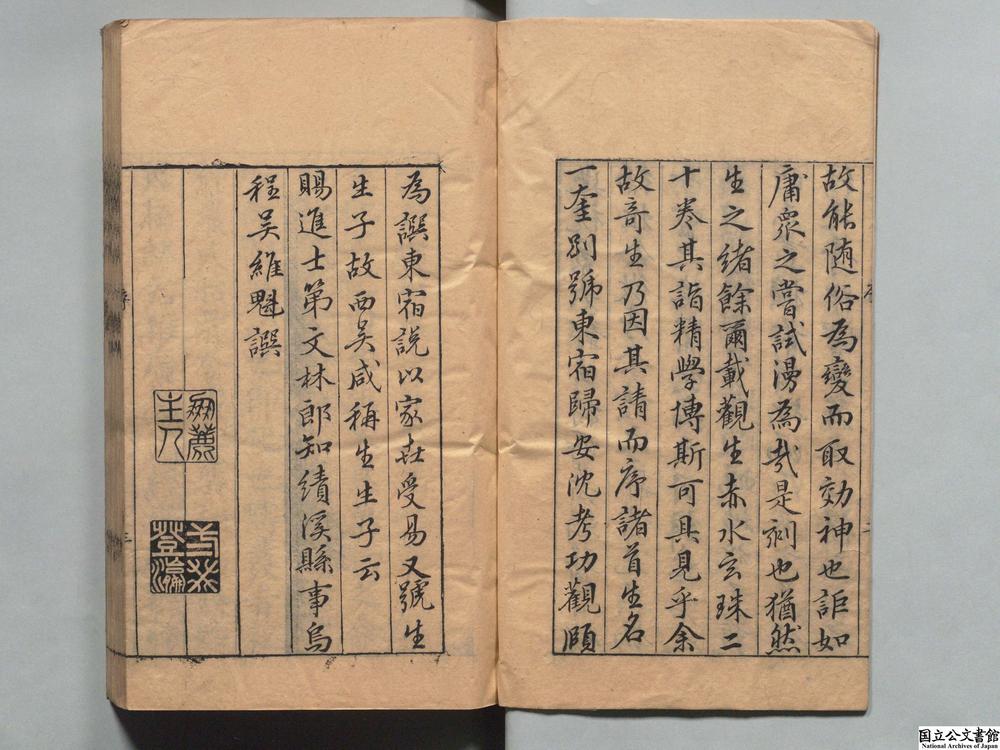 故能随俗為變而取効神也詎如
庸衆之嘗試漫為㢤是刻也猶然
生之緒餘爾載觀生赤水玄珠二
十卷其詣精學博斯可具見乎余
故奇生乃因其請而序諸首生名
一奎別號東宿歸安沈考功觀頤
為譔東宿說以家世受易又號生
生子故西吴咸稱生生子云
賜進士第文林郎知績溪縣事烏
程吴維魁譔
序
三
主人
登瀛
国立公文書館
National Archives of Japan